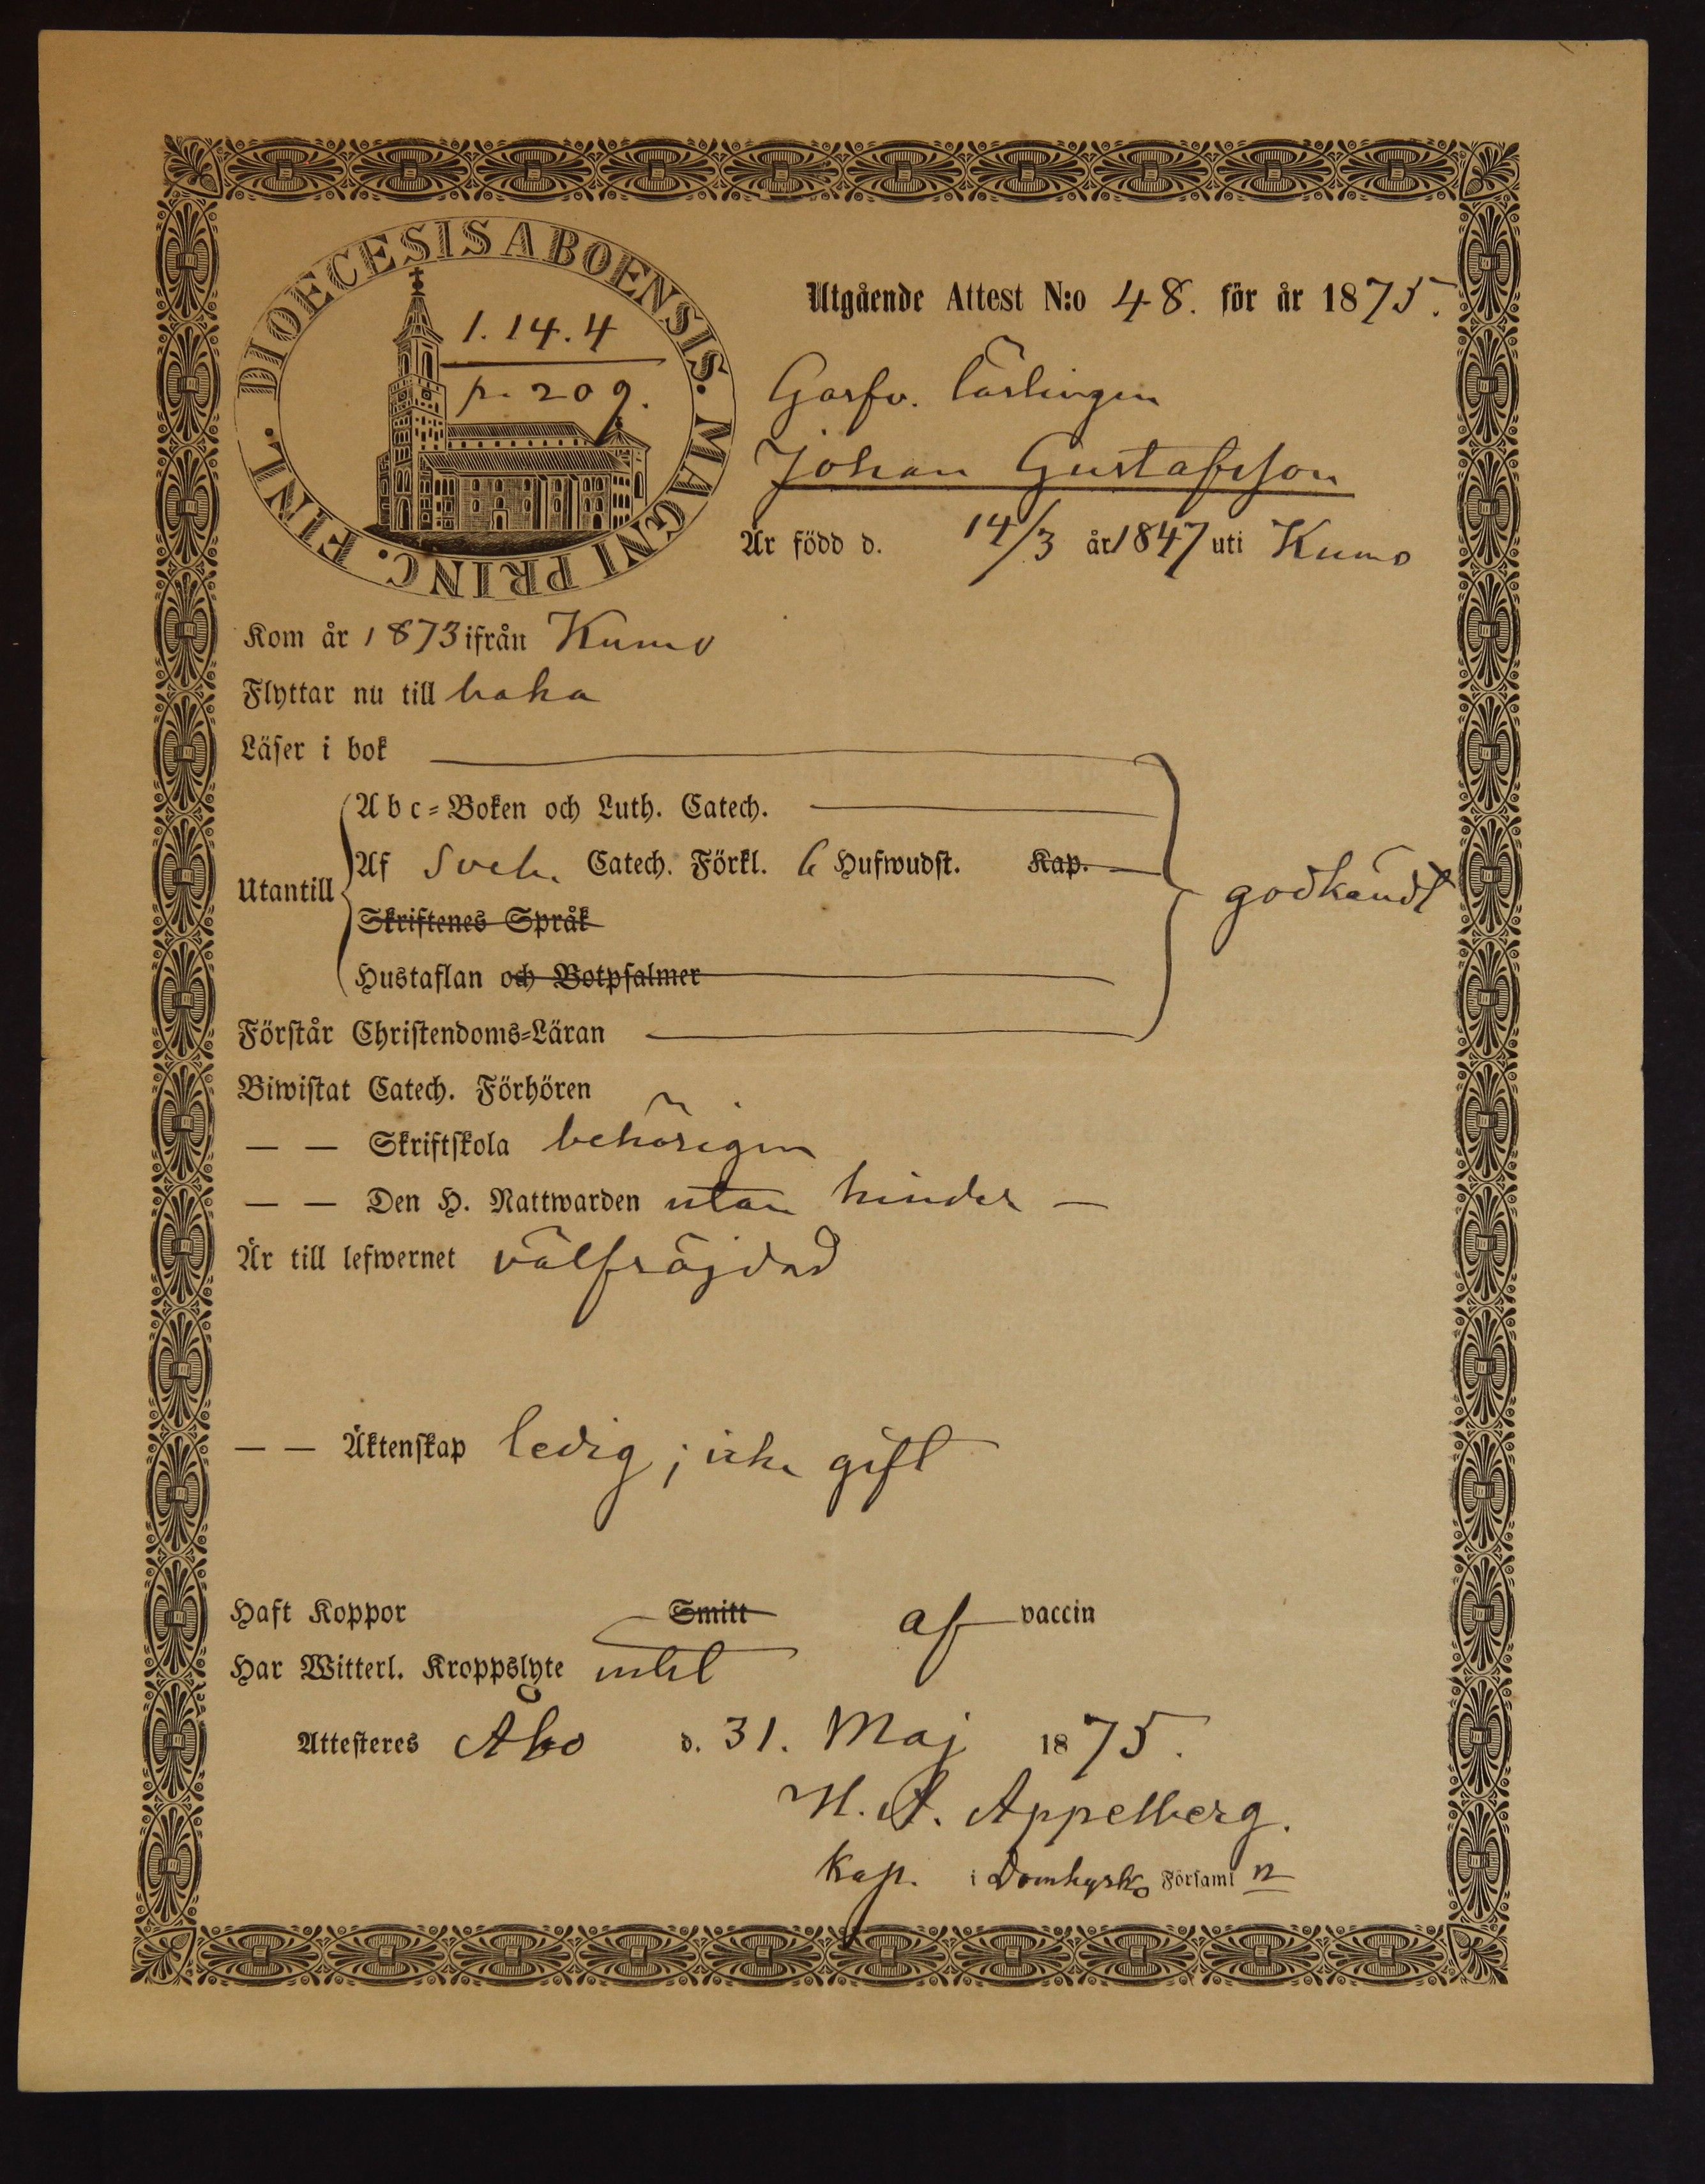 DIOECESIS ABOENSIS. MAGNI PRINC. FINL.
1. 14. 4
p. 209.
Utgående Attest N:o 48. för år 1875.
Garfv. lärlingen
Johan Gustafsson
Är född d. 14/3 år 1847 uti Kumo
Kom år 1873 ifrån Kumo
Flyttar nu till baka
Läser i bok
Utantill
Abc-Boken och Luth. Catech.
Af Sveb. Catech. Förkl. 6 Hufwudst. Kap.
Skriftenes Språk
Hustaflan och Botpsalmer
godkändt
Förstår Christendoms-Läran
Biwistat Catech. Förhören
— — Skriftskola behörigen
— — Den H. Nattwarden utan hinder —
Är till lefwernet välfräjdad
— — Äktenskap ledig; icke gift
Haft Koppor Smitt af vaccin
Har Witterl. Kroppslyte intet
Attesteres Åbo d. 31. Maj 1875.
Appelberg.
Kap. i Domkyrko Församl n